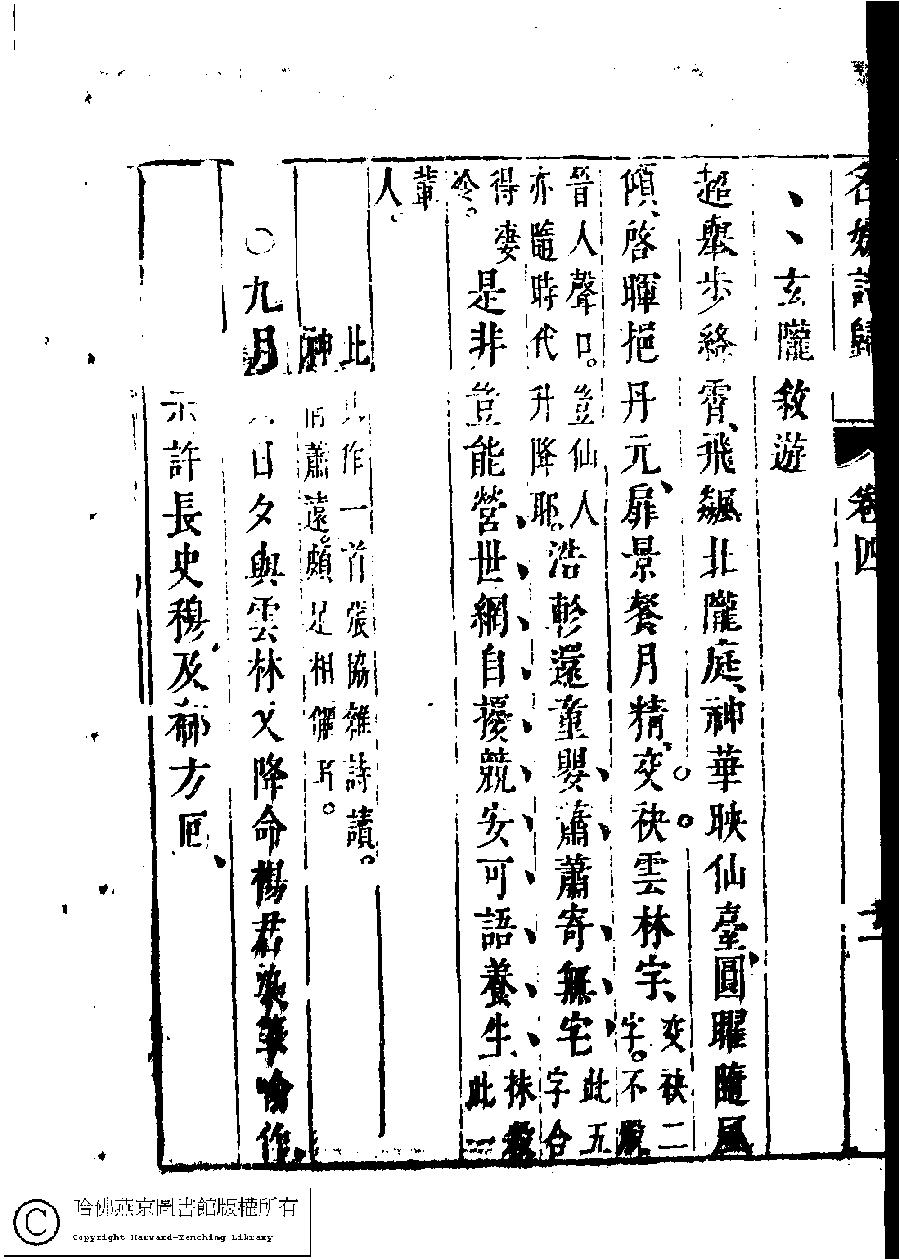 名媛詩歸 卷四
玄隴敘遊
超舉步絳霄、飛飆北隴庭、神華映仙臺、圓曜隨風
傾、啓暉挹丹元、扉景餐月精、交袂雲林宇、交袂二字。不類
晉人聲口。豈仙人亦隨時代升降耶。浩軫還童嬰、蕭蕭寄無宅、此五字合
得凄冷。是非豈能營、世網自擾競、安可語養生、抹殺此一
輩人。
此作一首張協雜詩讀。神情蕭遠。頗足相儷耳。
○九月六日夕與雲林又降命楊君染筆喻作、
示許長史穆及郗方回、
哈佛燕京圖書館版權所有
Copyright Harvard-Yenching Library